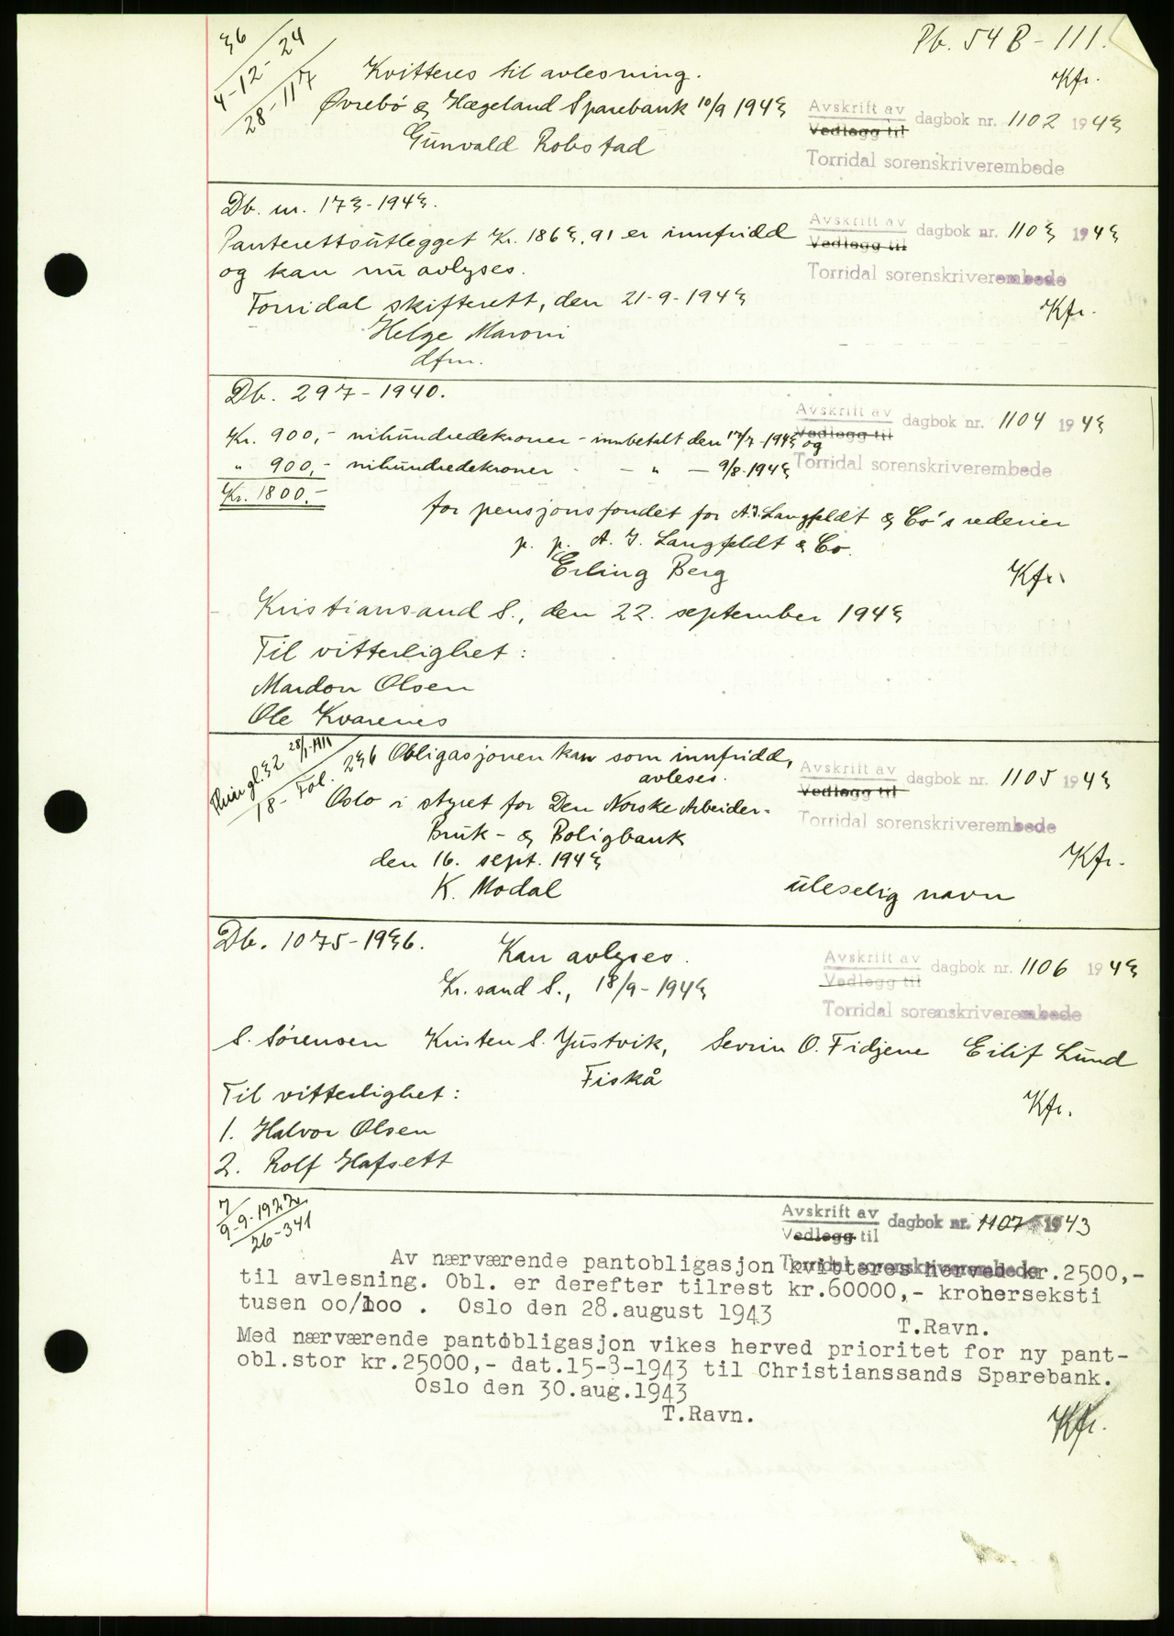 Pb. 54 B - 111.
36
4-12-24
28-117
Kvitteres til avlesning.
Kfr.
Øvrebö & Hægeland Sparebank 10/9 1943
Gunvald Robstad
Avskrift av
Vedlegg til
dagbok nr. 1102 1943
Torridal sorenskriverembede
Db. nr. 173-1943.
Panterettsutlegget Kr. 1863,91 er innfridd
og kan nu avlyses.
Torridal skifterett, den 21-9-1943
Helge Maroni
dfm.
Avskrift av
Vedlegg til
dagbok nr. 1103 1943
Torridal sorenskriverembede
Kfr.
Db. 297-1940.
Kr. 900,- nihundredekroner - innbetalt den 17/7-1943 og
" 900,- nihundredekroner - " - 9/8-1943
Kr. 1800.-
Avskrift av
Vedlegg til
dagbok nr. 1104 1943
Torridal sorenskriverembede
for pensjonsfondet for A.I. Langfeldt & Co's rederier
p. p. A. I. Langfeldt & Co.
Erling Berg
Kfr.
Kristiansand S., den 22. september 1943
Til vitterlighet:
Mardon Olsen
Ole Kvarenes
Thingl. 32 28/1-1911
18- Fol. 236
Obligasjonen kan som innfridd,
avleses.
Oslo i styret for Den Norske Arbeider-
Bruk- & Boligbank
den 16. sept. 1943
K. Modal
uleselig navn
Avskrift av
Vedlegg til
dagbok nr. 1105 1943
Torridal sorenskriverembede
Kfr.
Db. 1075-1936.
Kan avlyses.
Kr.sand S., 18/9-1943
Avskrift av
Vedlegg til
dagbok nr. 1106 1943
Torridal sorenskriverembede
S. Sörensen Kristen S. Justvik, Sevrin O. Fidjene Eilif Lund
Fiskå
Til vitterlighet:
Kfr.
1. Halvor Olsen
2. Rolf Hafsett
7
9-9-1922
26-341
Avskrift av
Vedlegg til
dagbok nr. 1107 1943
Torridal sorenskriverembede
Av nærværende pantobligasjon kvitteres herved kr.2500,-
til avlesning. Obl. er derefter tilrest kr.60000,- kronerseksti
tusen oo/100 . Oslo den 28.august 1943
T.Ravn.
Med nærværende pantobligasjon vikes herved prioritet for ny pant-
obl.stor kr.25000,- dat.15-8-1943 til Christianssands Sparebank.
Oslo den 30.aug.1943
T.Ravn.
Kfr.